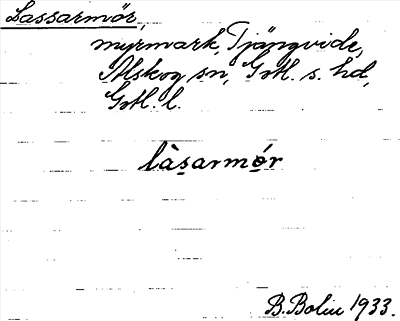 Lassarmör,
myrmark, Tjängvide,
Alskog sn, Gotl. s. hd,
Gotl. l.
làs̱armó̱r
B. Bolin 1933.